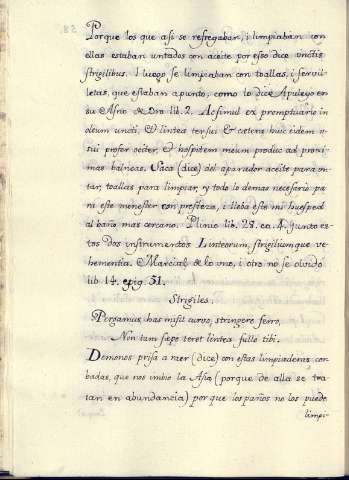 Porque los que asi se refregaban, i limpiaban con
ellas estaban untados con aceite por esso dice unctis
strigilibus. I luego se limpiaban con toallas, i servi-
lletas, que estaban apunto, como lo dice Apuleyo en
su Asno de Oro lib. 2. Ac simul ex promptuario in
oleum uncti, & lintea tersui & cætera huic eidem u-
tui profer ociter, & hospitem meum produc ad proxi-
mas balneas. Saca (dice) del aparador aceite para on-
tar, toallas para limpiar, y todo lo demas necesario pa
ra este menester con presteza, i lleba este mi huesped
al baño mas cercano. Plinio lib. 28. c. 4. junto es-
tos dos instrumentos Linteorum, strigiliumque ve-
hementia. Marcial de lo uno, i otro no se olvido
lib 14. epig. 51.
Strigiles.
Pergamus has misit curvo, stringere ferro,
Non tam sæpe teret lintea fullo tibi.
Demonos prisa a raer (dice) con estas limpiaderas cor-
badas, que nos imbio la Asia (porque de alla se tra-
ian en abundancia) por que los paños no los puede
limpi-